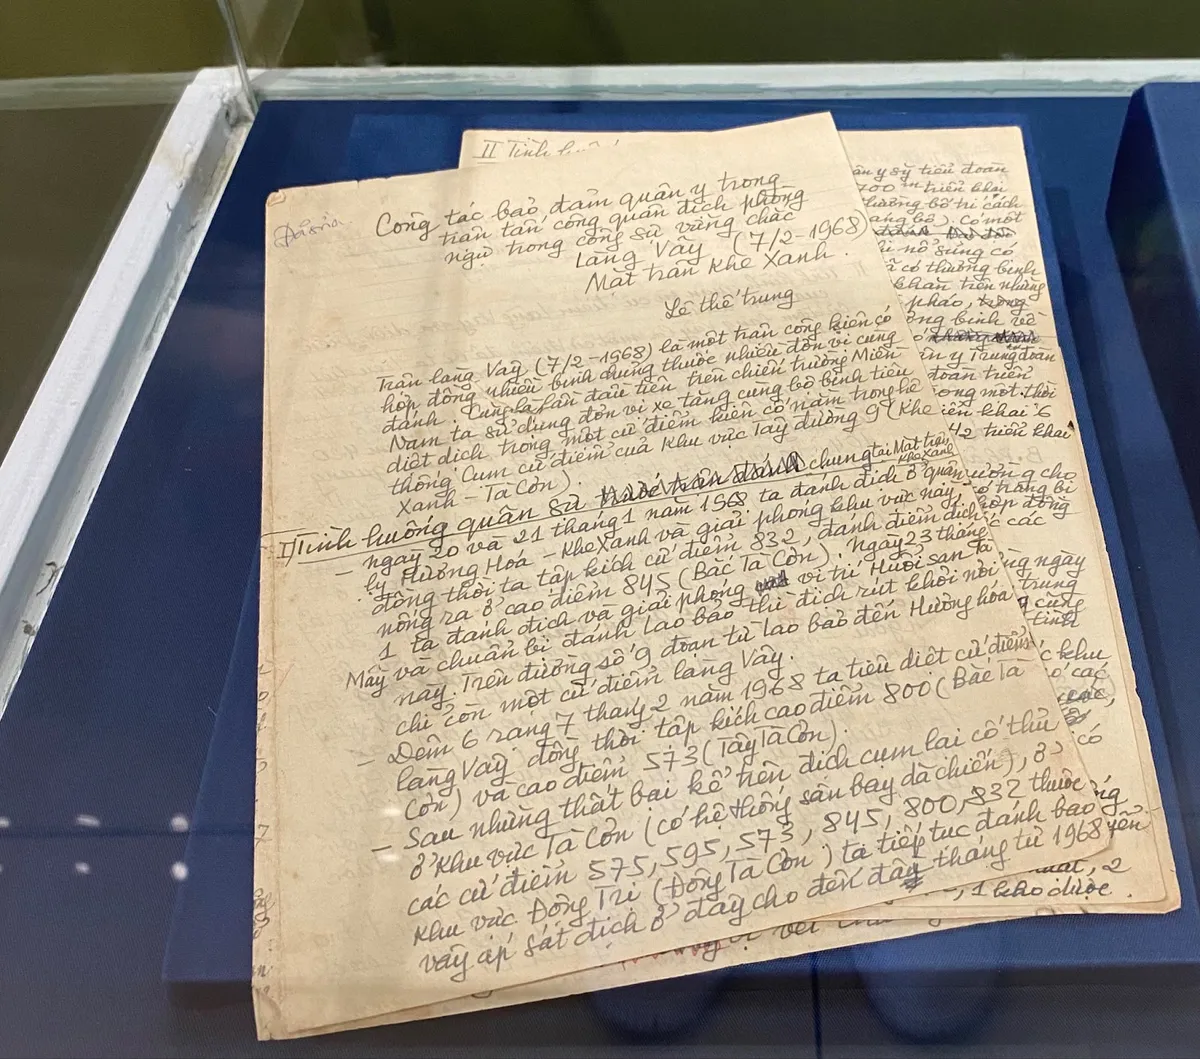 Công tác bảo đảm quân y trong
trận tấn công quân địch phòng
ngự trong công sự vững chắc
Làng Vây (7/2-1968)
Mặt trận Khe Xanh.
Lê thế Trung
Trận làng Vây (7/2-1968) là một trận công kiên có
hợp đồng nhiều binh chủng thuộc nhiều đơn vị cùng
đánh. Cũng là lần đầu tiên trên chiến trường Miền
Nam ta sử dụng đơn vị xe tăng cùng bộ binh tiêu
diệt địch trong một cứ điểm kiên cố nằm trong hệ
thống Cụm cứ điểm của Khu vực Tây đường 9 (Khe
Xanh - Tà Cơn).
I) Tình huống quân sự chung tại Mặt trận
Khe Xanh
- ngày 20 và 21 tháng 1 năm 1968 ta đánh địch ở quận
lỵ Hướng Hoá - Khe Xanh và giải phóng khu vực này
đồng thời ta tập kích cứ điểm 832, đánh điểm địch
nống ra ở cao điểm 845 (Bắc Tà Cơn). ngày 23 tháng
1 ta đánh địch và giải phóng vị trí Huổi san Tà
Mây và chuẩn bị đánh Lao bảo thì địch rút khỏi nơi
này. Trên đường số 9 đoạn từ lao bảo đến Hướng hóa
chỉ còn một cứ điểm làng Vây.
- Đêm 6 rạng 7 tháng 2 năm 1968 ta tiêu diệt cứ điểm
làng Vây đồng thời tập kích cao điểm 800 (Bắc Tà
Cơn) và cao điểm 573 (Tây Tà Cơn).
- Sau những thất bại kể trên địch cụm lại cố thủ
ở khu vực Tà Cơn (có hệ thống sân bay dã chiến), ở
các cứ điểm 575, 595, 573, 845, 800, 832 thuộc
khu vực Động Tri (Đông Tà Cơn) ta tiếp tục đánh bao
vây áp sát địch ở đây cho đến đây tháng tư 1968
II Tình
ân y sỹ tiểu đoàn
700 m triển khai
thường bố trí cách
có một
nổ súng có
có thương binh
khăn trên những
pháo,
binh về
y Trung đoàn
đoàn triển
ong một thời
khai 6
42 triển khai
cho
trang bị
hợp đồng
các
ngày
trung
cũng
tình
khu
các
có
2
, 1 kho dược.